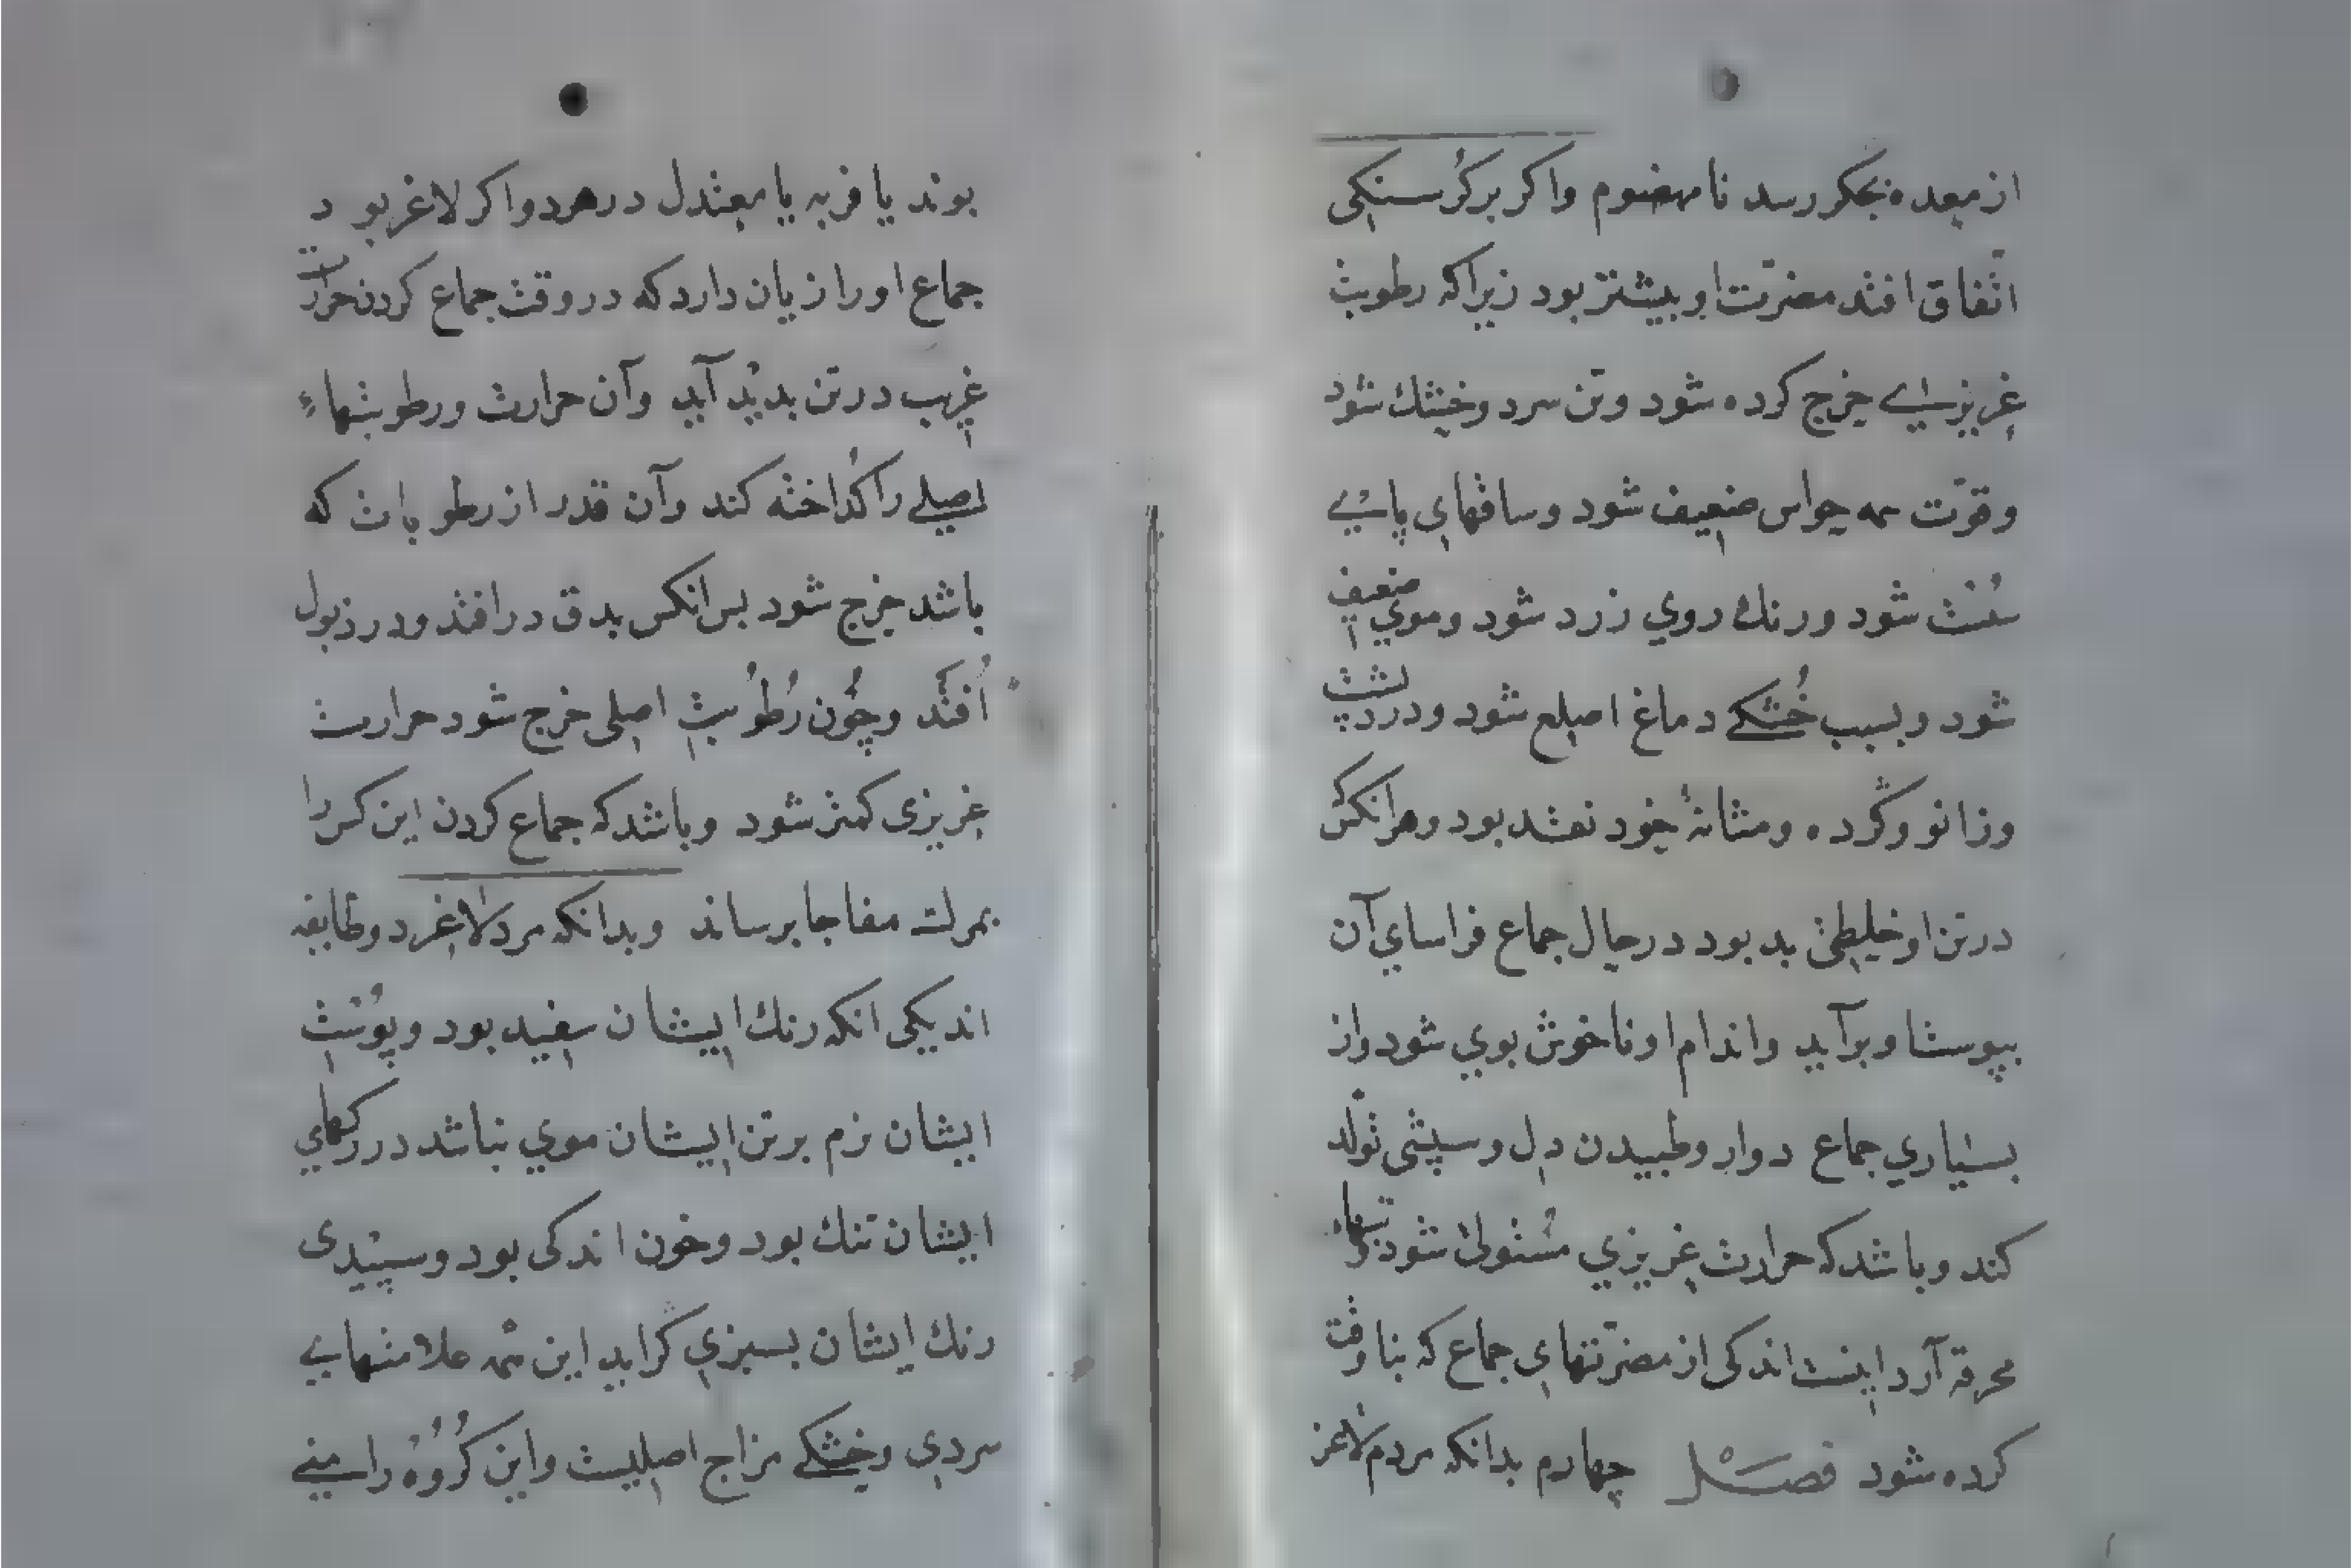 از معده بجکر رسد نا مهضوم واکر بر کرسنکی
اتّفاق افتد مضرّت او بیشتر بود زیرا که رطوبت
غریزی خرج کرده شود وتن سرد وخشک شود
وقوّت همه حواس ضعیف شود وساقهای پای
سُست شود ورنک روي زرد شود وموي ضعیف
شود وبسبب خُشکے دماغ اصلع شود ودرد پشت
وزانو وکُرده ومثانهٔ خود نقد بود وهرانکس
در تن او خلطی بد بود در حال جماع فراسای آن
بپوست او برآید واندام او ناخوش بوي شود واز
بسیاري جماع دوار وطپیدن دل وسپستی تولّد
کند وباشد که حرارت غریزي مُستولی شود تبهاء
محرقه آرد اینست اندکی از مضرّتهاي جماع که بنا وقت
کرده شود فصل چهارم بدانکه مردم لاغر
بوند یا فربه یا معتدل در هر دو اکر لاغر بود
جماع او را زیان دارد که در وقت جماع کردن حرارت
غریب در تن بدید آید وآن حرارت ورطوبتهاء
اصلے را کُداخته کند وآن قدر از رطوبات که
باشد خرج شود بس انکس بدق در افتد ودر ذبول
اُفتد وچُون رُطُوبت اصلی خرج شود حرارت
غریزی کمتر شود وباشد که جماع کردن این کس را
بمرک مفاجا برساند وبدانکه مردم لاغر دو طایفه
اند یکی انکه رنک ایشان سفید بود وپُوست
ایشان نرم بر تن ایشان موي نباشد در رکهاي
ایشان تنک بود وخون اندکی بود وسپیدی
رنک ایشان بسبزي کراید این همه علامتهایے
سردي وخشکے مزاج اصلیست واین کُرُوه را منی